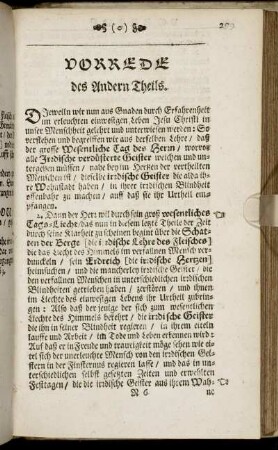 (o)
VORREDE
des Andern Theils.
DJeweiln wir nun aus Gnaden durch Erfahrenheit
im erleuchten einweſigen Leben Jeſu Chriſti in
unſer Menſchheit gelehrt und unterwieſen werden: So
verſtehen und begreiffen wir aus derſelben Lehre / daß
der groſſe Weſentliche Tag des Herrn / worvor
alle Jrꝛdiſche verdüſterte Geiſter weichen und un-
tergehen müſſen / nahe bey im Hertzen der vertheilten
Menſchen iſt / dieſelbe irꝛdiſche Geiſter die alda ih-
re Wohnſtadt haben / in ihrer irꝛdiſchen Blindheit
offenbahr zu machen / auff daß ſie ihr Urtheil em-
pfangen.
2. Dann der Herr will durch ſein groß weſentliche
Tags-Liecht / das nun in dieſem letzte Theile der Zeit
durch ſeine Klarheit zu ſcheinen begint über die Schat-
ten der Berge [die irdiſche Lehre des Fleiſches]
das Liecht des Himmels im verfallnen Menſch ver-
dunckeln / ſein Erdreich [die irꝛdiſche Hertzen]
heimſuchen / und die mancherley irꝛdiſche Geiſter / die
den verfallnen Menſchen in unterſchiedlichen irꝛdiſchen
Blindheiten getrieben haben / zerſtören / und ihnen
im Liechte des einweſigen Lebens ihr Urtheil zubrin-
gen: Alſo daß der jenige der ſich zum weſentlichen
Liechte des Himmels bekehrt / die irꝛdiſche Geiſter
die ihn in ſeiner Blindheit regieren / in ihrem eiteln
lauffe und Arbeit / im Tode und Leben erkennen wird:
Auf daß er in Freude und traurigkeit möge ſehen wie ei-
tel ſich der unerleuchte Menſch von den irꝛdiſchen Gei-
ſtern in der Finſternus regieren laſſe / und das in un-
terſchiedlichen ſelbſt geſetzten Zeiten und erwelten
Feſttagen / die die irꝛdiſche Geiſter aus ihrem Wah-
N 6 ne